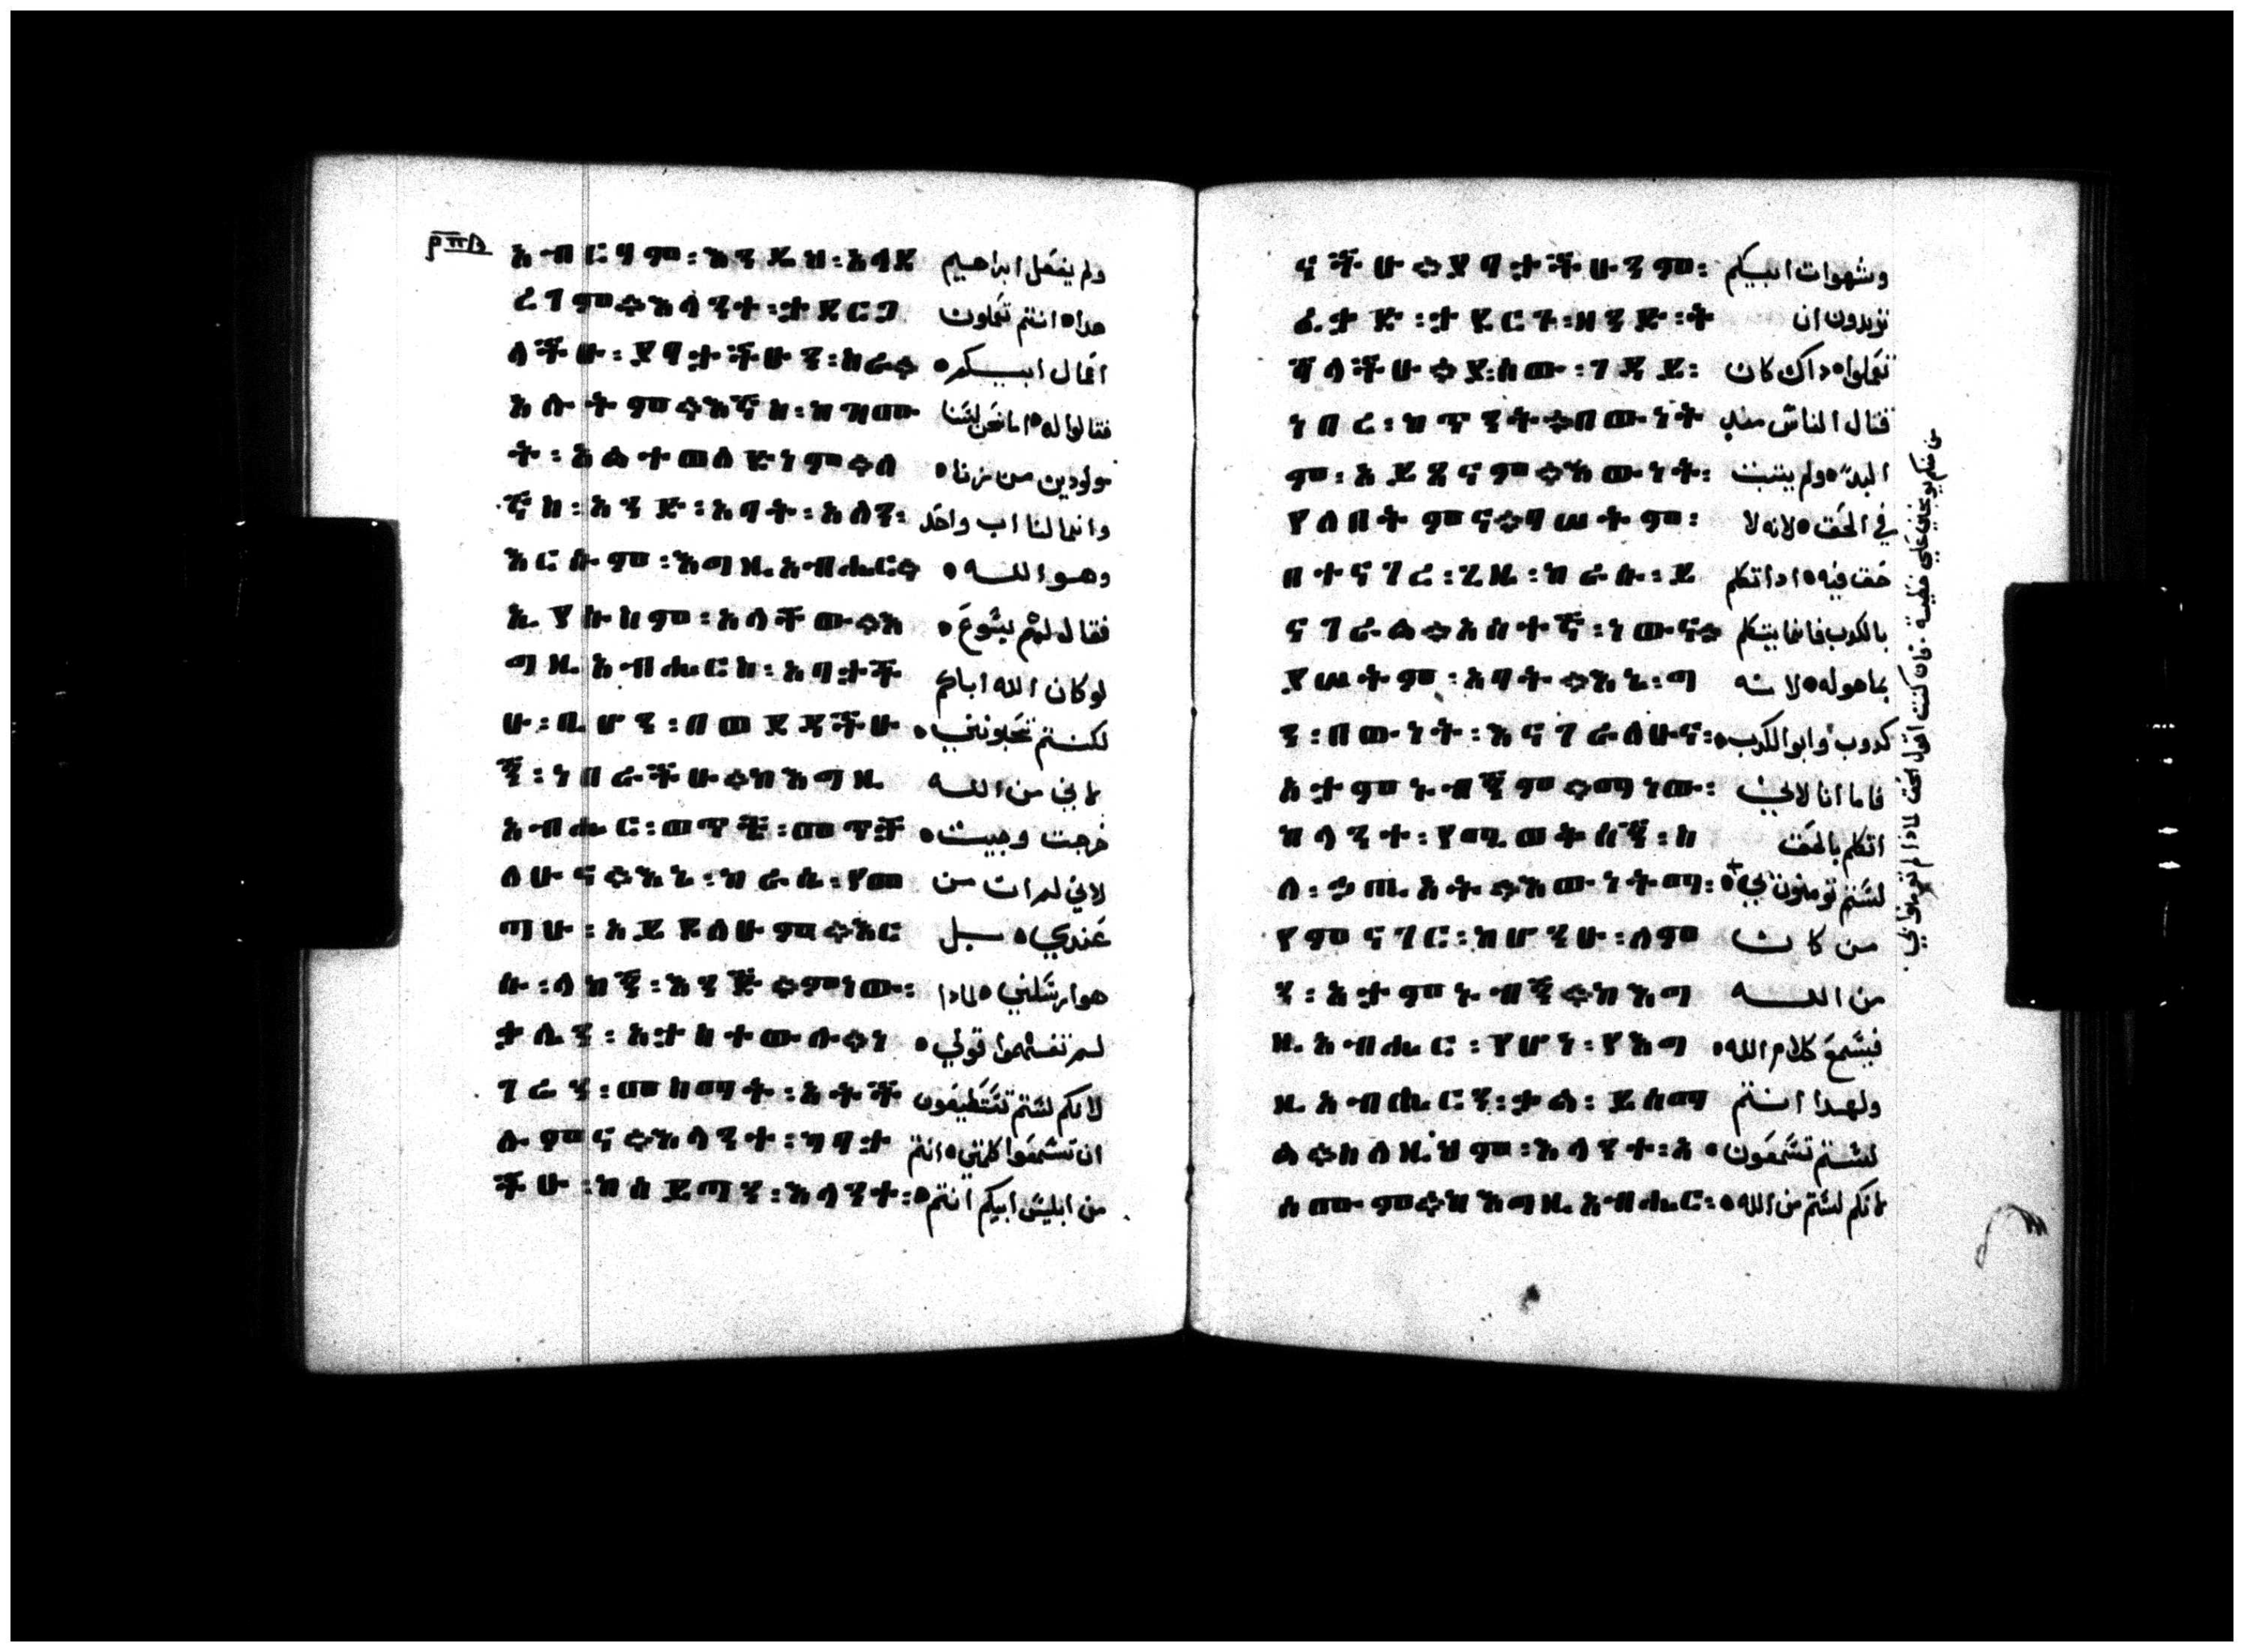 አብርሃም፡እንደዚህ፡አላደ ولم يفعل ابراهيم
ረገም።እላንተ፡ታደርጋ هدا ه انتم تعملون
ላችሁ፡ያባታችሁን፡ስራ። اعمال ابيكم ه
አሉትም።እኛስ፡ከዝሙ فقالوا له ه اما نحن لسنا
ት፡አልተወለድነም።ለ مولودين من زنا ه
ኛስ፡አንድ፡አባት፡አለን፡ وانما لنا اب واحد
እርሱም፡እግዚአብሔር። وهو الله ه
ኢየሱስም፡አላቸው።እ فقال لهم يسوع ه
ግዚአብሔርስ፡አባታች لو كان الله اباكم
ሁ፡ቢሆን፡በወደዳችሁ لكنتم تحبونني ه
ኝ፡ነበራችሁ።ከእግዚ لاني من الله
አብሔር፡ወጥቼ፡መጥቻ خرجت وجيت ه
ለሁና።እኔ፡ከራሴ፡የመ لاني لم ات من
ጣሁ፡አይደለሁም።እር عندي ه بل
ሱ፡ላከኝ፡እንጅ።ምነው፡ هو ارسلني ه لمادا
ቃሌን፡አታስተውሉ።ነ لم تفهموا قولي ه
ገሬን፡መስማት፡አትች لانكم لستم تستطيعون
ሉምና።እላንተ፡ካባታ ان تسمعوا كلمتي ه انتم
ችሁ፡ከሰይጣን፡እላንተ፡ من ابليس ابيكم انتم ه
ናችሁ።ያባታችሁንም፡ وشهوات ابيكم
ፈቃድ፡ታደርጉ፡ዘንድ፡ት تريدون ان
ሻላችሁ።ያሰው፡ገዳይ፡ تعملوا ه داك كان
ነበረ፡ከጥንት።በውነት قتال الناس مند
ም፡አይጸናም።እውነት፡ البد ه ولم يثبت
የለበትምና።ባሠትም፡ في الحق ه لانه لا
በተናገረ፡ጊዜ፡ከራሱ፡ይ حق فيه ه ادا تكلم
ናገራል።አሰተኛ፡ነውና። بالكدب فانما يتكلم
የሠትም፡አባት።እኔ፡ግ بما هو له ه لانه
ን፡በውነት፡እናገራለሁና፡ كدوب وابو الكدب ه
አታምኑብኝም።ማነው፡ فاما انا لاني
ከላንተ፡የሚወቅሰኝ፡ስ اتكلم بالحق
ለ፡ኃጢአት።እውነት፡ማ፡ لستم تومنون بي ه
የምናገር፡ከሆንሁ፡ለም من كان
ን፡አታምኑብኝ።ከእግ من الله
ዚአብሔር፡የሆነ፡የእግ فيسمع كلام الله ه
ዚአብሔርን፡ቃል፡ይሰማ ولهدا انتم
ል።ስለዚህም፡እላንተ፡አ لستم تسمعون ه
ሰሙም።ከእግዚአብሔር፡ لانكم لستم من الله ه
من منكم يوبخني علي خطية ه فان كنت اقول الحق لمادا لم تومنوا بي